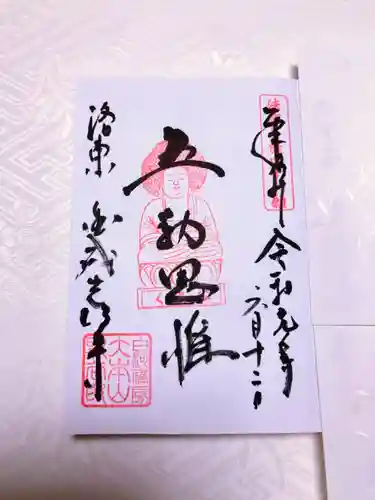 奉拝
令和元年
六月十二日
五劫思惟
洛東 金戒光明寺
大本山